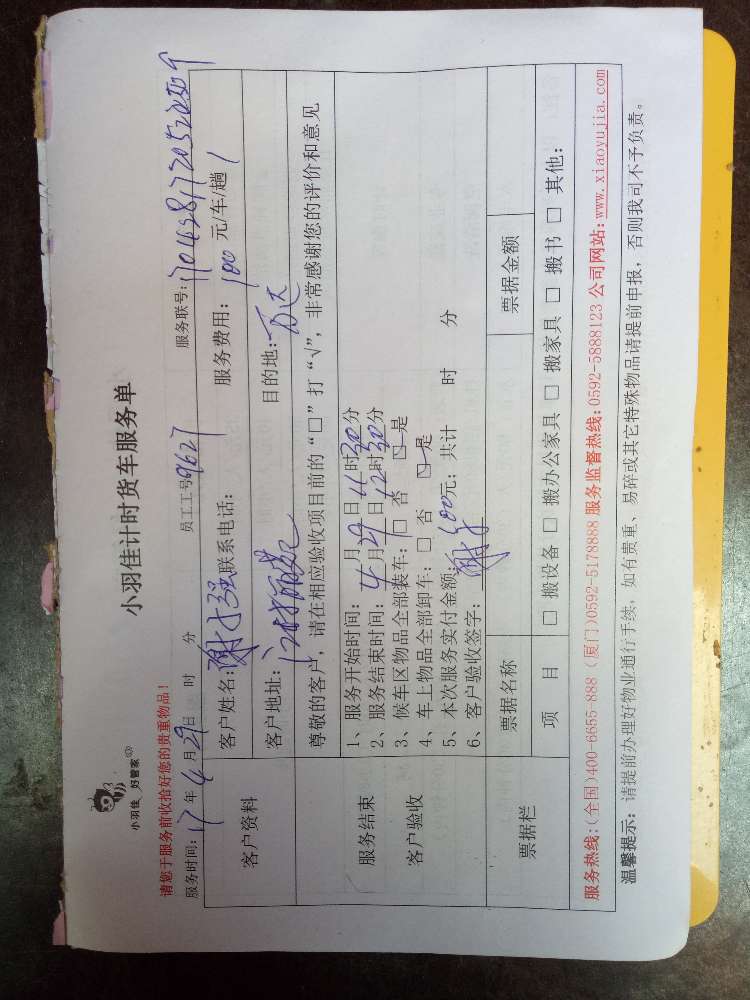 小羽佳 好管家®
小羽佳计时货车服务单
请您于服务前收拾好您的贵重物品！
服务时间：17年4月29日 时 分 员工工号9627 服务联号：
客户资料 客户姓名： 联系电话： 服务费用：100元/车/趟
客户地址： 目的地：
尊敬的客户，请在相应验收项目前的“□”打“√”，非常感谢您的评价和意见
服务结束
客户验收
1、服务开始时间：4月29日11时30分
2、服务结束时间：4月29日12时30分
3、候车区物品全部装车：□ 否 ☑ 是
4、车上物品全部卸车：□ 否 ☑ 是
5、本次服务实付金额：100元；共计 时 分
6、客户验收签字：
票据栏 票据名称 票据金额
项 目 □ 搬设备 □ 搬办公家具 □ 搬家具 □ 搬书 □ 其他：
服务热线：(全国)400-6655-888 (厦门)0592-5178888 服务监督热线：0592-5888123 公司网站：www.xiaoyujia.com
温馨提示：请提前办理好物业通行手续，如有贵重、易碎或其它特殊物品请提前申报，否则我司不予负责。